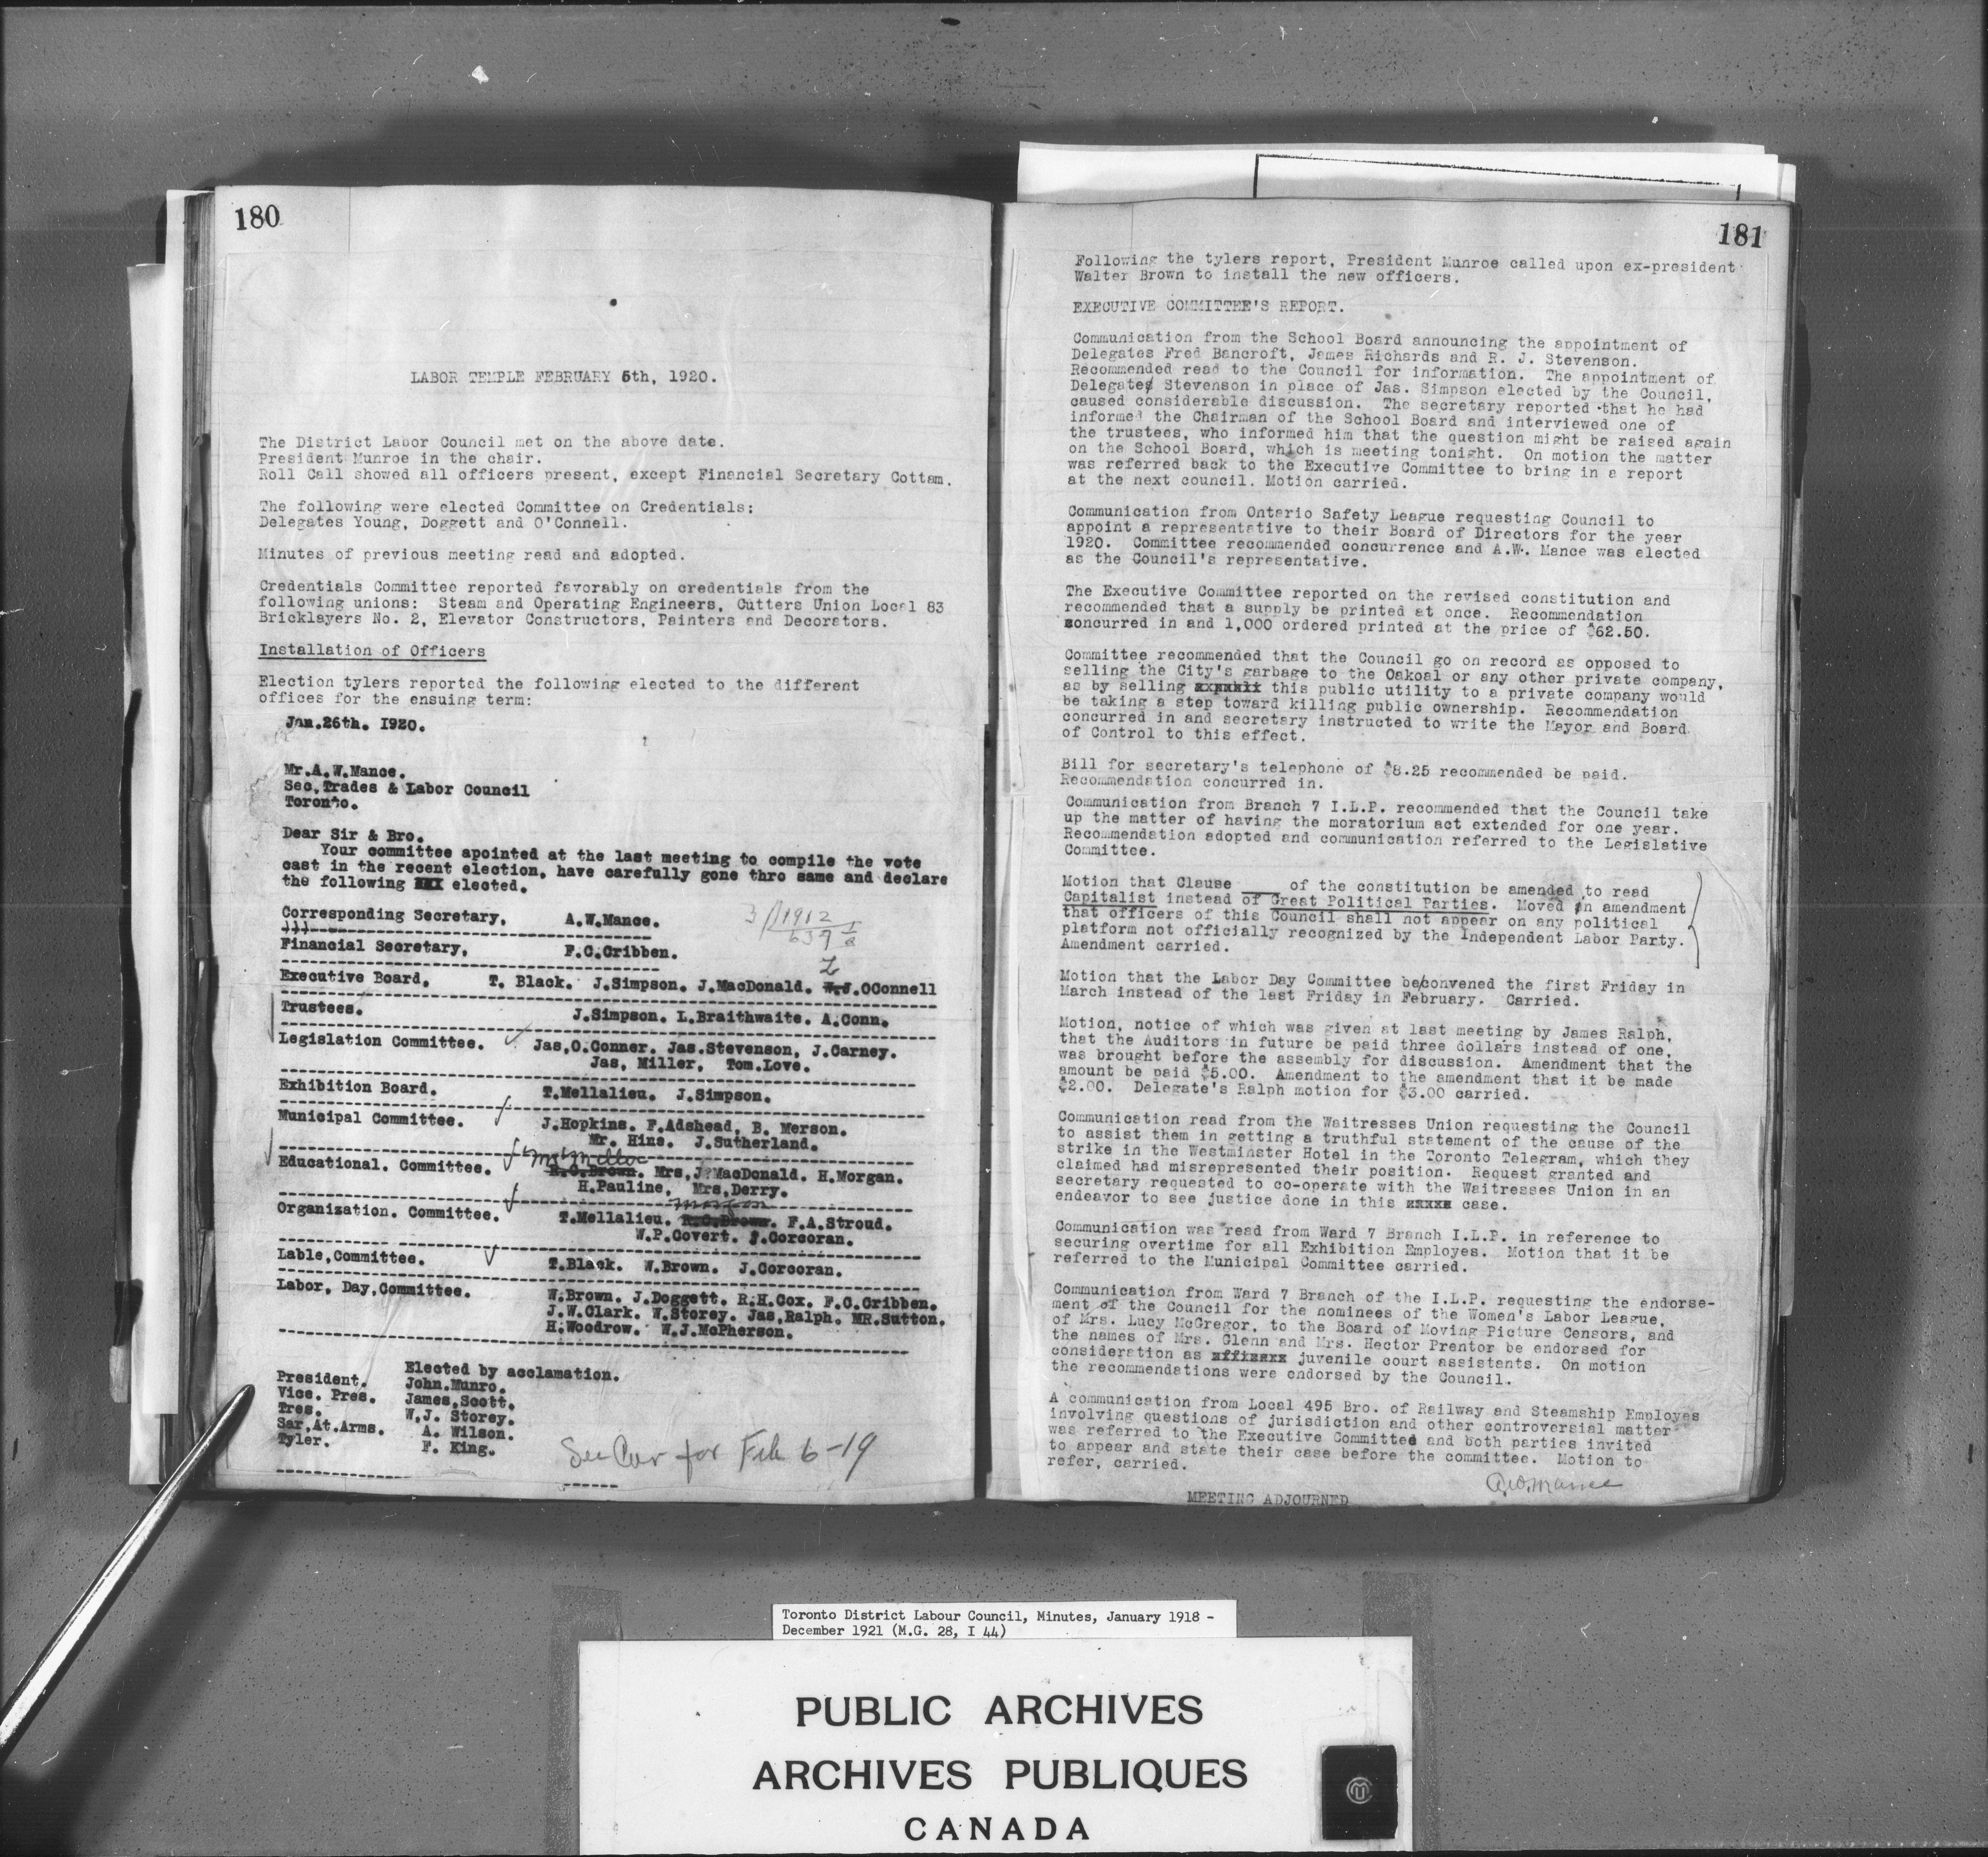 180
LABOR TEMPLE FEBRUARY 5th, 1920.
The District Labor Council met on the above date.
President Munroe in the chair.
Roll Call showed all officers present, except Financial Secretary Cottam.
The following were elected Committee on Credentials:
Delegates Young, Doggett and O'Connell.
Minutes of previous meeting read and adopted.
Credentials Committee reported favorably on credentials from the
following unions: Steam and Operating Engineers, Cutters Union Local 83
Bricklayers No. 2, Elevator Constructors, Painters and Decorators.
Installation of Officers
Election tylers reported the following elected to the different
offices for the ensuing term:
Jan.26th. 1920.
Mr.A.W.Mance.
Sec,Trades & Labor Council
Toronto.
Dear Sir & Bro.
Your committee apointed at the last meeting to compile the vote
cast in the recent election, have carefully gone thro same and declare
the following XXX elected.
Corresponding Secretary, A.W.Mance.
Financial Secretary, F.C.Cribben.
3 1912
637
Executive Board, T. Black. J.Simpson. J.MacDonald. W.J.OConnell
Trustees. J.Simpson. L.Braithwaite. A.Conn.
Legislation Committee. Jas,O.Conner. Jas.Stevenson, J.Carney.
Jas, Miller, Tom.Love.
Exhibition Board. T.Mellalieu. J.Simpson.
Municipal Committee. J.Hopkins. F.Adshead, B. Merson.
Mr. Hine. J.Sutherland.
Educational. Committee. R.C.Brown. Mrs,J.MacDonald. H.Morgan.
H.Pauline, Mrs,Derry.
Organization. Committee. T.Mellalieu. R.C.Brown. F.A.Stroud.
W.P.Covert. J.Corcoran.
Lable,Committee. T.Black. W.Brown. J.Corcoran.
Labor, Day,Committee. W.Brown. J.Doggett. R.H.Cox. F.C.Cribben.
J.W.Clark. W.Storey. Jas,Ralph. MR.Sutton.
H.Woodrow. W.J.McPherson.
Elected by acclamation.
President. John.Munro.
Vice. Pres. James,Scott.
Tres. W,J. Storey.
Sar,At.Arms. A. Wilson.
Tyler. F. King.
See Cor for Feb 6-19
181
Following the tylers report, President Munroe called upon ex-president
Walter Brown to install the new officers.
EXECUTIVE COMMITTEE'S REPORT.
Communication from the School Board announcing the appointment of
Delegates Fred Bancroft, James Richards and R. J. Stevenson.
Recommended read to the Council for information. The appointment of
Delegates Stevenson in place of Jas. Simpson elected by the Council,
caused considerable discussion. The secretary reported that he had
informed the Chairman of the School Board and interviewed one of
the trustees, who informed him that the question might be raised again
on the School Board, which is meeting tonight. On motion the matter
was referred back to the Executive Committee to bring in a report
at the next council. Motion carried.
Communication from Ontario Safety League requesting Council to
appoint a representative to their Board of Directors for the year
1920. Committee recommended concurrence and A.W. Mance was elected
as the Council's representative.
The Executive Committee reported on the revised constitution and
recommended that a supply be printed at once. Recommendation
concurred in and 1,000 ordered printed at the price of $62.50.
Committee recommended that the Council go on record as opposed to
selling the City's garbage to the Oakoal or any other private company,
as by selling this public utility to a private company would
be taking a step toward killing public ownership. Recommendation
concurred in and secretary instructed to write the Mayor and Board
of Control to this effect.
Bill for secretary's telephone of $8.25 recommended be paid.
Recommendation concurred in.
Communication from Branch 7 I.L.P. recommended that the Council take
up the matter of having the moratorium act extended for one year.
Recommendation adopted and communication referred to the Legislative
Committee.
Motion that Clause ____ of the constitution be amended to read
Capitalist instead of Great Political Parties. Moved in amendment
that officers of this Council shall not appear on any political
platform not officially recognized by the Independent Labor Party.
Amendment carried.
Motion that the Labor Day Committee be convened the first Friday in
March instead of the last Friday in February. Carried.
Motion, notice of which was given at last meeting by James Ralph,
that the Auditors in future be paid three dollars instead of one,
was brought before the assembly for discussion. Amendment that the
amount be paid $5.00. Amendment to the amendment that it be made
$2.00. Delegate's Ralph motion for $3.00 carried.
Communication read from the Waitresses Union requesting the Council
to assist them in getting a truthful statement of the cause of the
strike in the Westminster Hotel in the Toronto Telegram, which they
claimed had misrepresented their position. Request granted and
secretary requested to co-operate with the Waitresses Union in an
endeavor to see justice done in this xxxxx case.
Communication was read from Ward 7 Branch I.L.P. in reference to
securing overtime for all Exhibition Employes. Motion that it be
referred to the Municipal Committee carried.
Communication from Ward 7 Branch of the I.L.P. requesting the endorse-
ment of the Council for the nominees of the Women's Labor League,
of Mrs. Lucy McGregor, to the Board of Moving Picture Censors, and
the names of Mrs. Glenn and Mrs. Hector Prentor be endorsed for
consideration as juvenile court assistants. On motion
the recommendations were endorsed by the Council.
A communication from Local 495 Bro. of Railway and Steamship Employes
involving questions of jurisdiction and other controversial matter
was referred to the Executive Committee and both parties invited
to appear and state their case before the committee. Motion to
refer, carried.
A.W.Mance
MEETING ADJOURNED
Toronto District Labour Council, Minutes, January 1918 -
December 1921 (M.G. 28, I 44)
PUBLIC ARCHIVES
ARCHIVES PUBLIQUES
CANADA